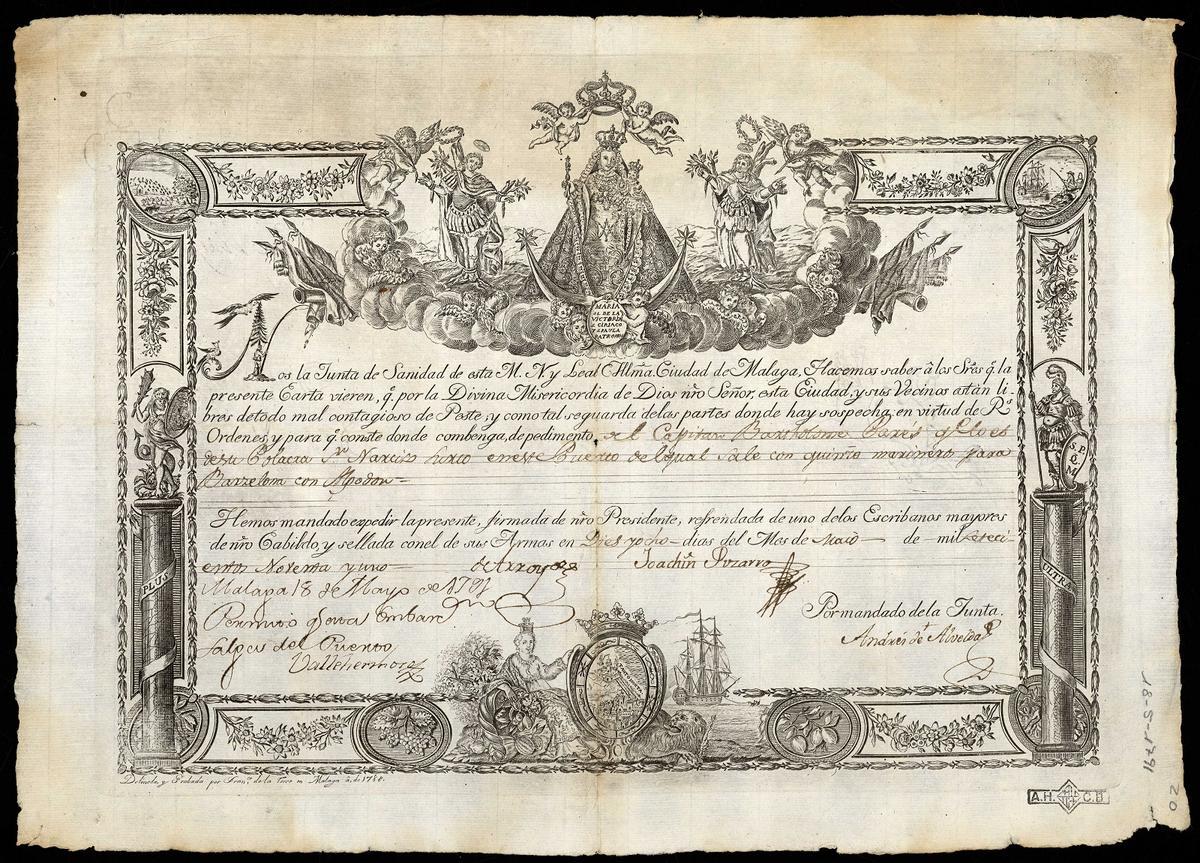 MARIA
SS. DE LA
VICTORIA
S. CIRIACO
Y S. PAULA
PATRON
Nos la Junta de Sanidad de esta M. N. y Leal CIllma. Ciudad de Malaga, Hacemos saber â los Sres. q. la
presente Carta vieren, q. por la Divina Misericordia de Dios nrõ Señor, esta Ciudad, y sus Vecinos están li
bres de todo mal contagioso de Peste, y como tal se guarda de las partes donde hay sospecha, en virtud de Rs.
Ordenes, y para q. conste donde combenga, de pedimento del Capitan Bartholome Parés q. lo es
de su Polacra Sn. Narciso surco en este Puerto del qual sale con quinze marineros para
Barzelona con Algodon
Hemos mandado expedir la presente, firmada de nrõ Presidente, refrendada de uno de los Escribanos mayores
de nrõ Cabildo, y sellada con el de sus Armas en Dies y ocho dias del Mes de Maio de mil seteci
entos Noventa y uno
de Arroyo
Joachin Pizarro
Malaga 18 de Mayo de 1791
Permito q. esta Embarc.
salga del Puerto
Vallehermoso
Por mandado de la Junta.
Andres de Alvelda
PLUS
ULTRA
S. P.
Q.
M.
Delineada, y Grabada por Franco. de la Torre en Malaga a. de 1780.
A.H. C.B
18-5-1791
20